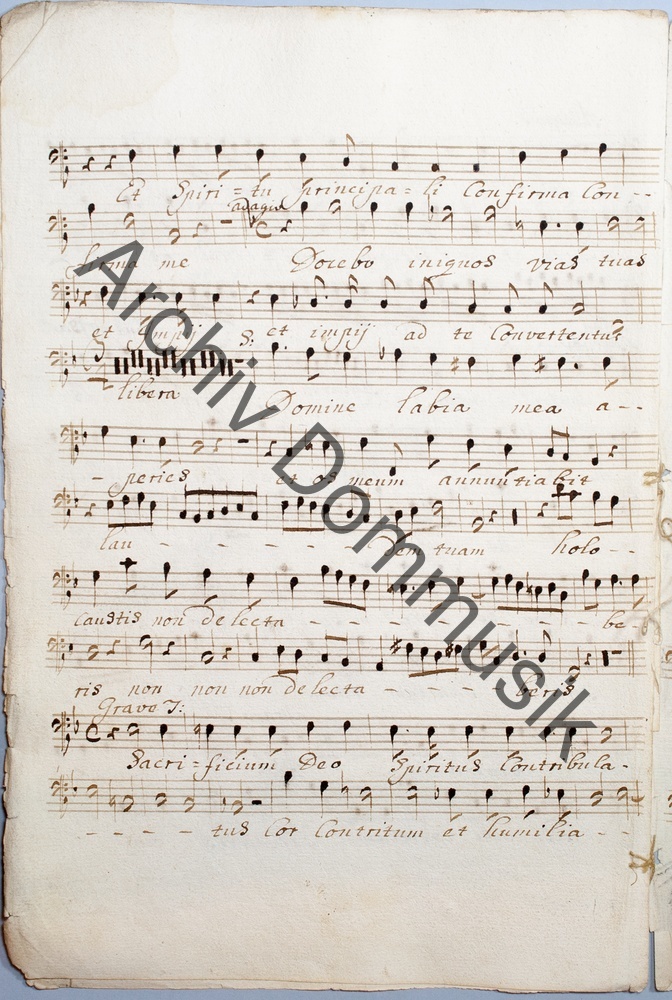 Et Spiri = tu principa = li Confirma Con - -
adagio
firma me Docebo iniquos vias tuas
et impij S: et impij ad te Convertentur
libera Domine labia mea á - -
- peries et os meum annuntiabit
lau - - - - - - - dem tuam holo - -
caustis non delecta - - - - - - - - be -
ris non non non delecta - - - - beris
Grave T:
Sacri = ficium Deo Spiritus Contribula -
- - - - - tus Cor Contritum et humilia - -
Archiv Dommusik